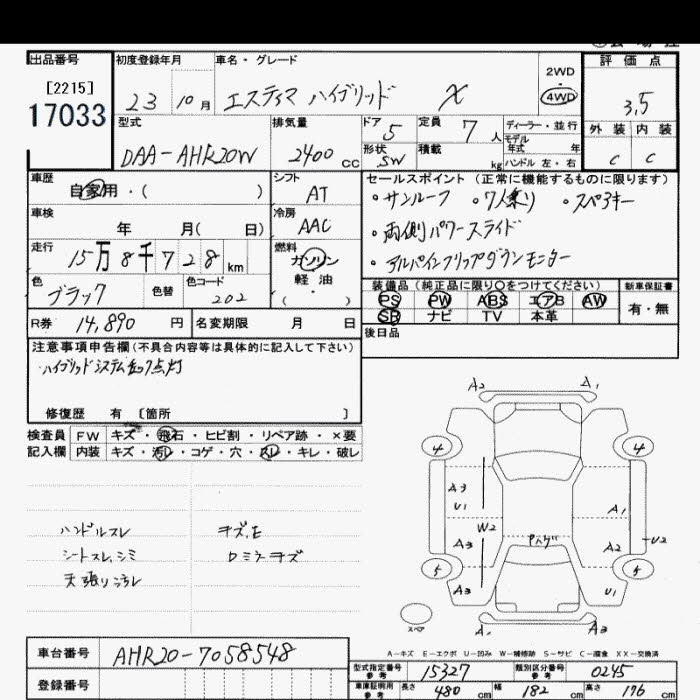 出品番号
[2215]
17033
初度登録年月
23 10月
車名・グレード
エスティマ ハイブリッド X
2WD
4WD
評価点
3.5
外装 内装
C C
型式
DAA-AHR20W
排気量
2400cc
ドア 5
定員 7人
形状 SW
積載 kg
ディーラー・並行
モデル年式 年
ハンドル 左・右
車歴
自家用・( )
シフト
AT
車検
年 月( 日)
冷房
AAC
走行
15万8千728km
燃料
ガソリン
軽油
( )
色
ブラック
色替
色コード
202
R券 14,890円
名変期限 月 日
セールスポイント (正常に機能するものに限ります)
・サンルーフ ・7人乗り ・スペアキー
・両側パワースライド
・アルパインフリップダウンモニター
装備品(純正品に限り○をつけてください)
PS PW ABS エアB AW
SR ナビ TV 本革
新車保証書
有・無
後日品
注意事項申告欄(不具合内容等は具体的に記入して下さい)
ハイブリッドシステムチェック点灯
修復歴 有 〔箇所 〕
検査員 FW キズ・飛石・ヒビ割・リペア跡・×要
記入欄 内装 キズ・汚レ・コゲ・穴・スレ・キレ・破レ
ハンドルスレ
シートスレ、シミ
天張り汚レ
キズ、E
ロミラーキズ
A2 A1
4 4
A3
U1
A1
W2
A3
A2
U2
5 5
A3
U1
スペア
A1 A3
A-キズ E-エクボ U-凹み W-補修跡 S-サビ C-腐食 XX-交換済
車台番号
AHR20-7058548
登録番号
型式指定番号
参考
15327
類別区分番号
参考
0245
車庫証明用
参考
長さ 480cm
幅 182cm
高さ 176cm